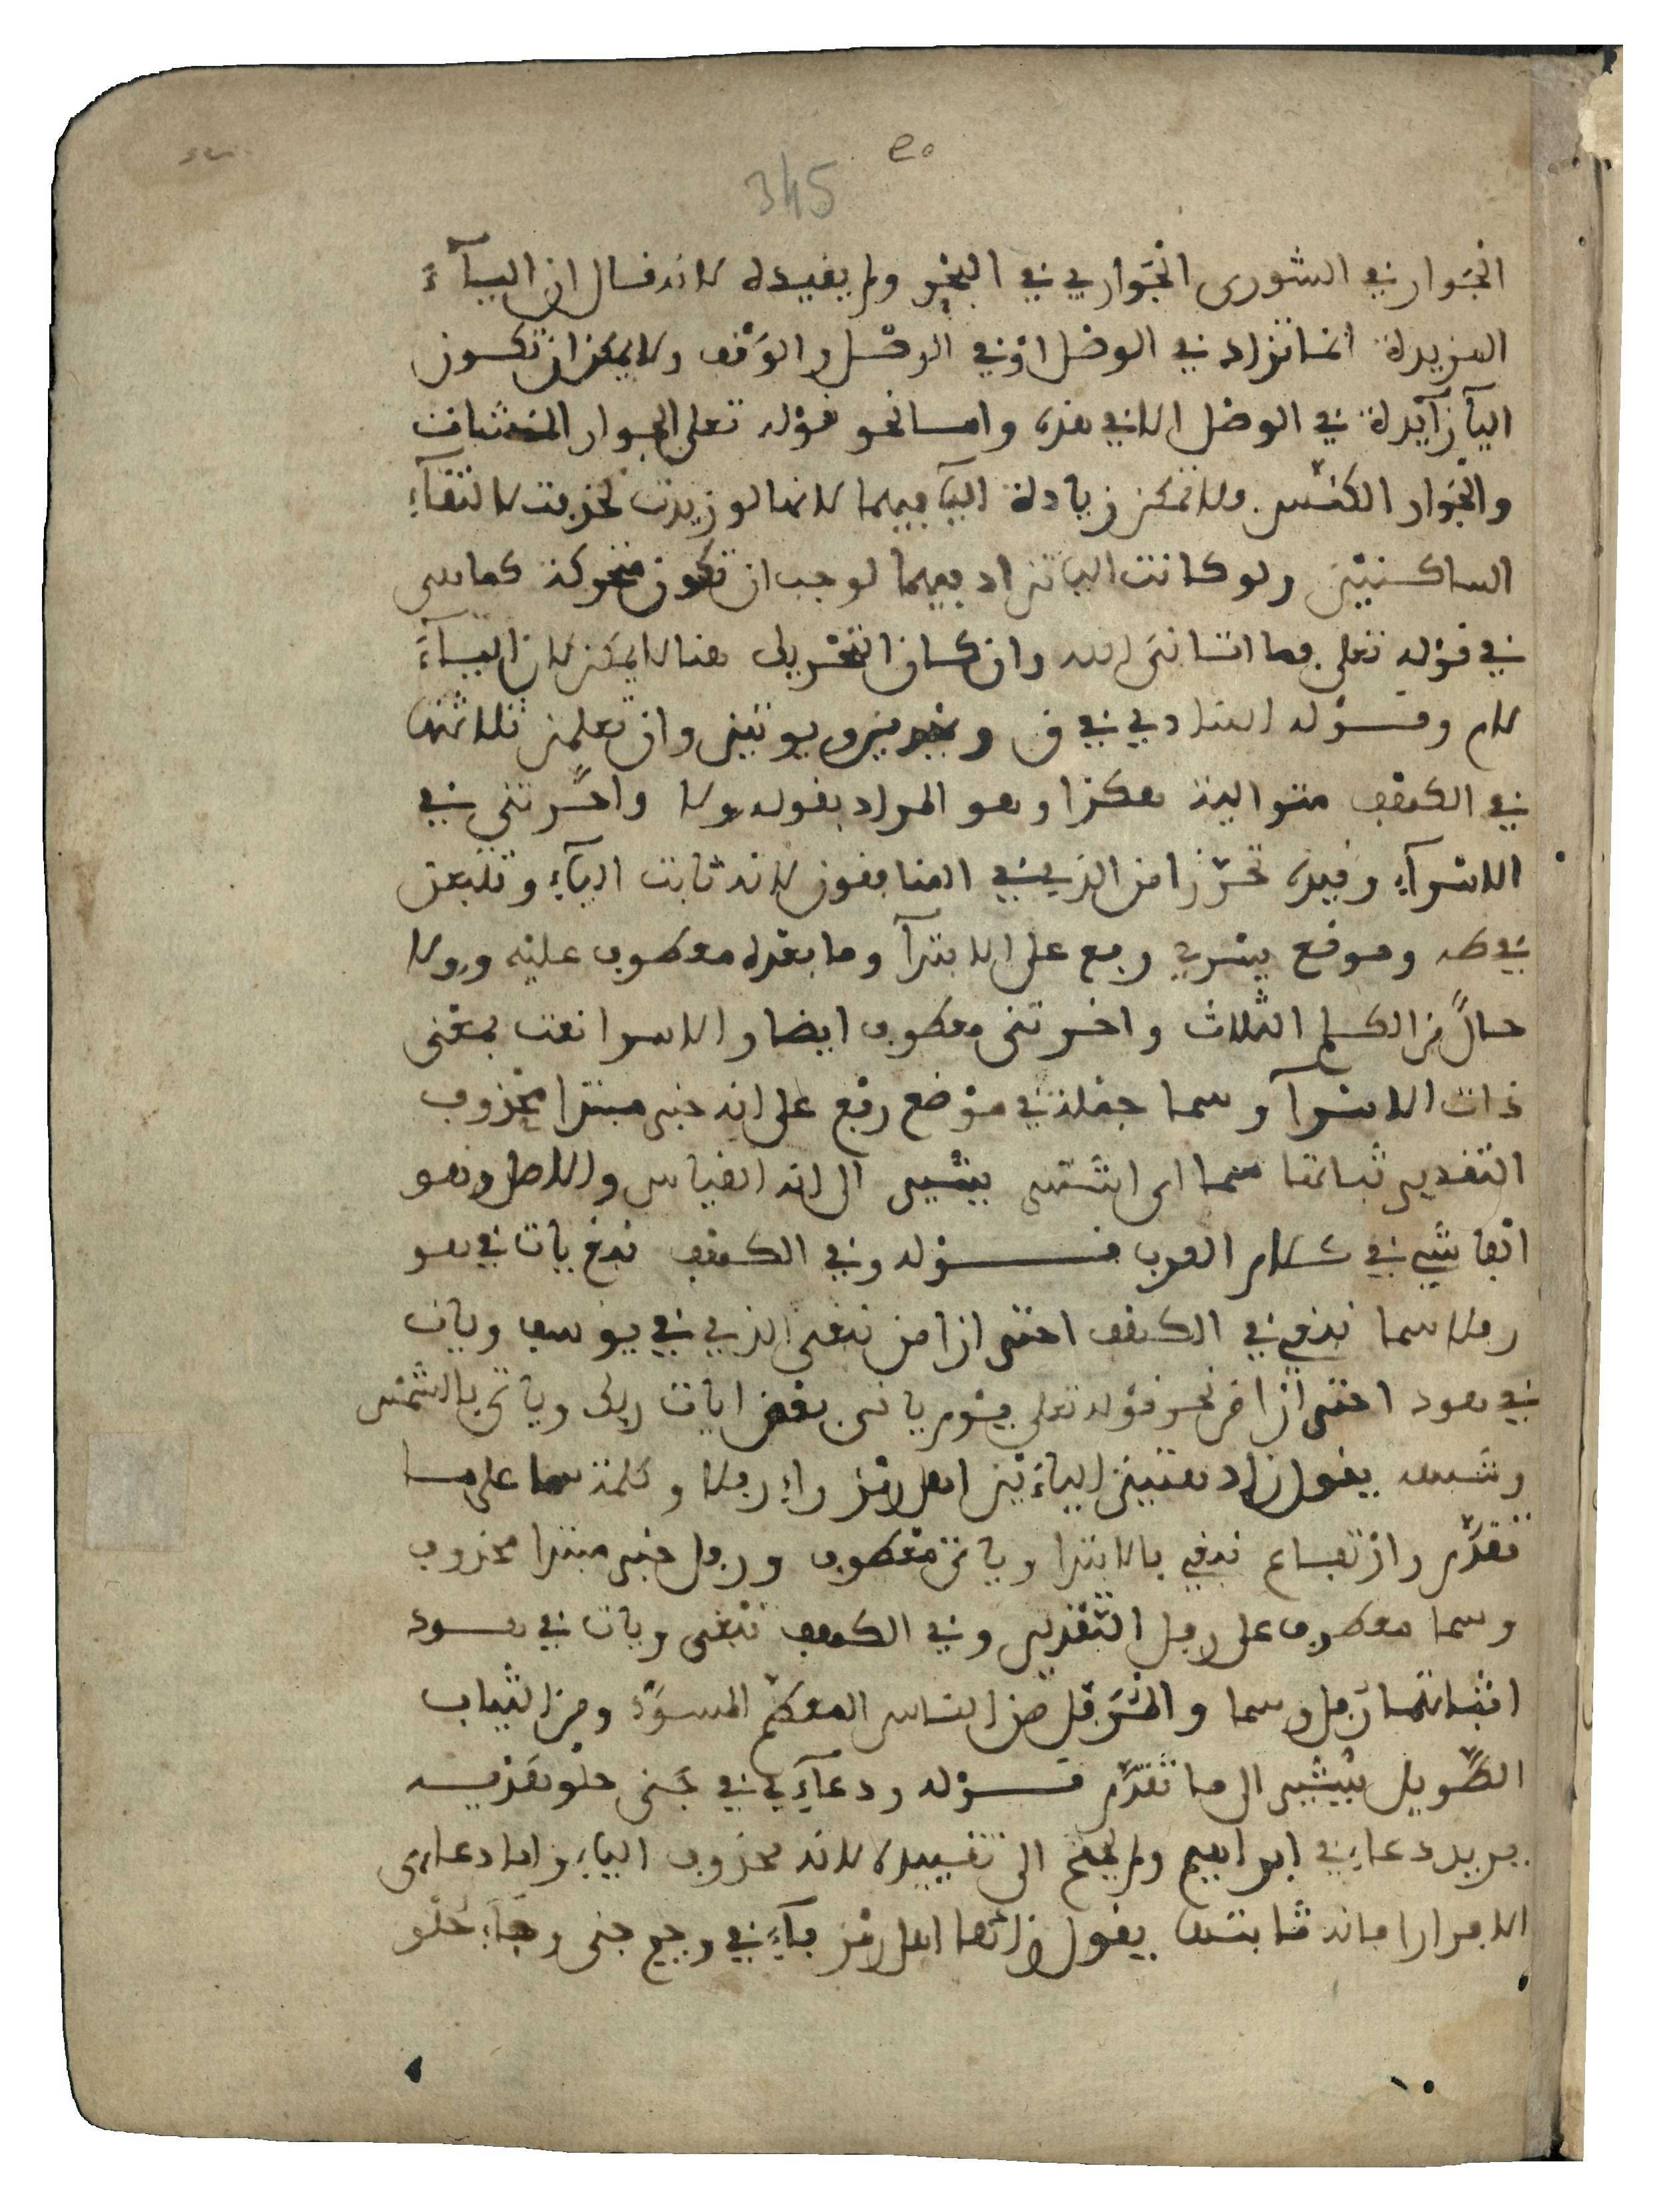 345
الجوار في الشورى الجواري في البحر ولم يفيده لانه قال ان اليآء
المزيدة انما تزاد في الوصل او في الوصل والوقف ولا يمكن ان تكون
اليآ زآيدة في الوصل الا في هذه واما نحو قوله تعلى الجوار المنشئات
والجوار الكنّس ولا تمكن زيادة اليآ فيهما لانها لو زيدت لحذفت لالتقآء
الساكنين ولو كانت اليا تزاد فيهما لوجب ان تكون متحركة كما هي
في قوله تعلى فما اتاني الله وان كان التحريك هنا لا يمكن لان اليآء
لام وقوله المنادي في ق ويهدين ويوتين وان تعلمن ثلاثتها
في الكهف متوالية هكذا وهو المراد بقوله ولا واخّرتني في
الاسرآء وقيده تحرّزا من الذي في المنافقون لانه ثابت اليآء وتتبعن
في طه وموضع يسري رفع على الابتدآ وما بعده معطوف عليه وولا
حالٌ من الكلم الثلاث واخرتني معطوف ايضا والاسرا نعت بمعنى
ذات الاسرآ وسما جملة في موضع رفع على انه خبر مبتدا محذوف
التقدير ثباتها سما اي اشتهر يشير الى انه القياس والاصل وهو
افشا شي في كلام العرب قوله وفي الكهف نبغ يات في هو
رفلا سما نبغي في الكهف احترازا من نبغي الذي في يوسف ويات
في هود احترازا من نحو قوله تعلى يوم ياتي بعض ايات ربك وياتي بالشمس
وشبهه يقول زاد هتين الياءين اهل رمز راء رفلا وكلمة سما على ما
تقدّم وارتفاع نبغي بالابتدا وياتي معطوف ورفل خبر مبتدا محذوف
وسما معطوف على رفل التقدير وفي الكهف نبغي ويات في هود
اثباتهما رفل وسما والمُرَفّل من الناس المعظّم المسوّد ومن الثياب
الطّويل يشير الى ما تقدّم قوله ودعآءي في جنى حلو هديه
يريد دعاء في ابراهيم ولم يحتج الى تقييده لانه محذوف الياء واما دعاءي
الا فرارا فانه ثابتها يقول زادها اهل رمز فآء في وجيم جنى وحآء حلو